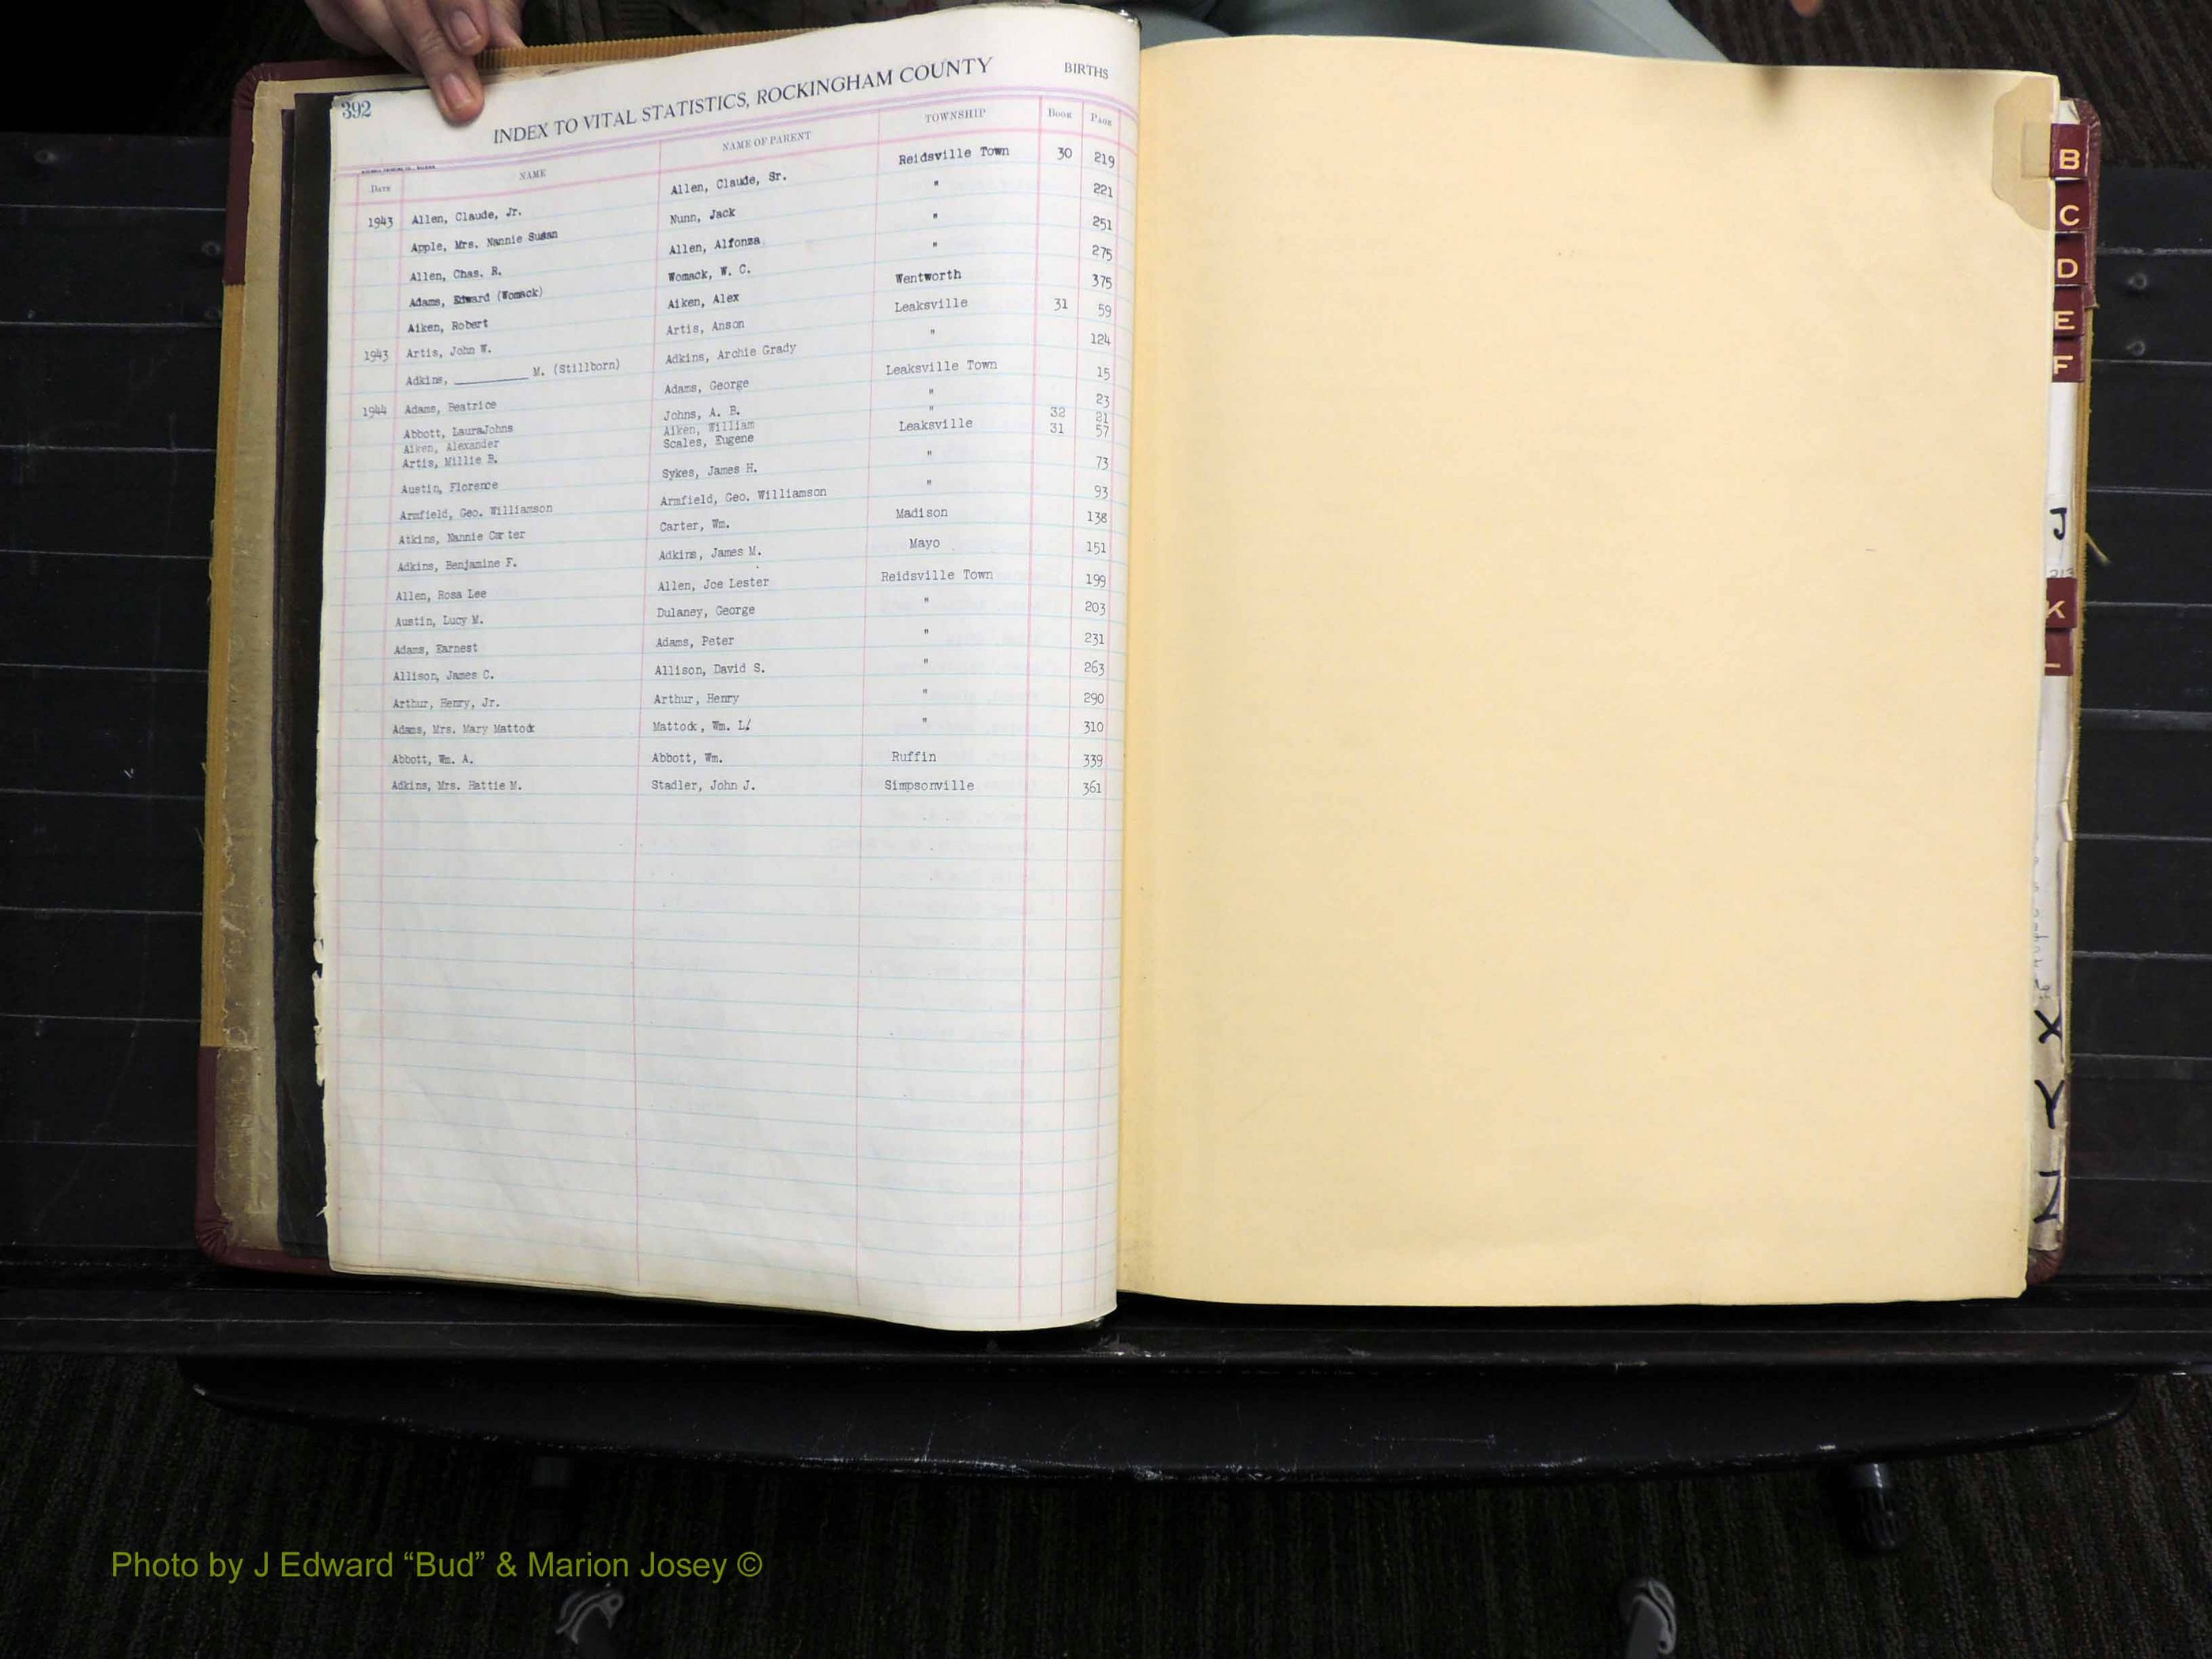 392
INDEX TO VITAL STATISTICS, ROCKINGHAM COUNTY BIRTHS
DATE NAME NAME OF PARENT TOWNSHIP BOOK PAGE
1943 Allen, Claude, Jr. Allen, Claude, Sr. Reidsville Town 30 219
Apple, Mrs. Nannie Susan Nunn, Jack " 221
Allen, Chas. R. Allen, Alfonza " 251
Adams, Edward (Womack) Womack, W. C. " 275
Aiken, Robert Aiken, Alex Wentworth 375
1943 Artis, John W. Artis, Anson Leaksville 31 59
Adkins, __________ M. (Stillborn) Adkins, Archie Grady " 124
1944 Adams, Beatrice Adams, George Leaksville Town 15
Abbott, LauraJohns Johns, A. B. " 23
Aiken, Alexander Aiken, William " 32 21
Artis, Millie B. Scales, Eugene Leaksville 31 57
Austin, Florence Sykes, James H. " 73
Armfield, Geo. Williamson Armfield, Geo. Williamson " 93
Atkins, Nannie Carter Carter, Wm. Madison 138
Adkins, Benjamine F. Adkins, James M. Mayo 151
Allen, Rosa Lee Allen, Joe Lester Reidsville Town 199
Austin, Lucy M. Dulaney, George " 203
Adams, Earnest Adams, Peter " 231
Allison, James C. Allison, David S. " 263
Arthur, Henry, Jr. Arthur, Henry " 290
Adams, Mrs. Mary Mattock Mattock, Wm. L/ " 310
Abbott, Wm. A. Abbott, Wm. Ruffin 339
Adkins, Mrs. Hattie M. Stadler, John J. Simpsonville 361
B
C
D
E
F
J
K
L
X
Y
Z
Photo by J Edward “Bud” & Marion Josey ©